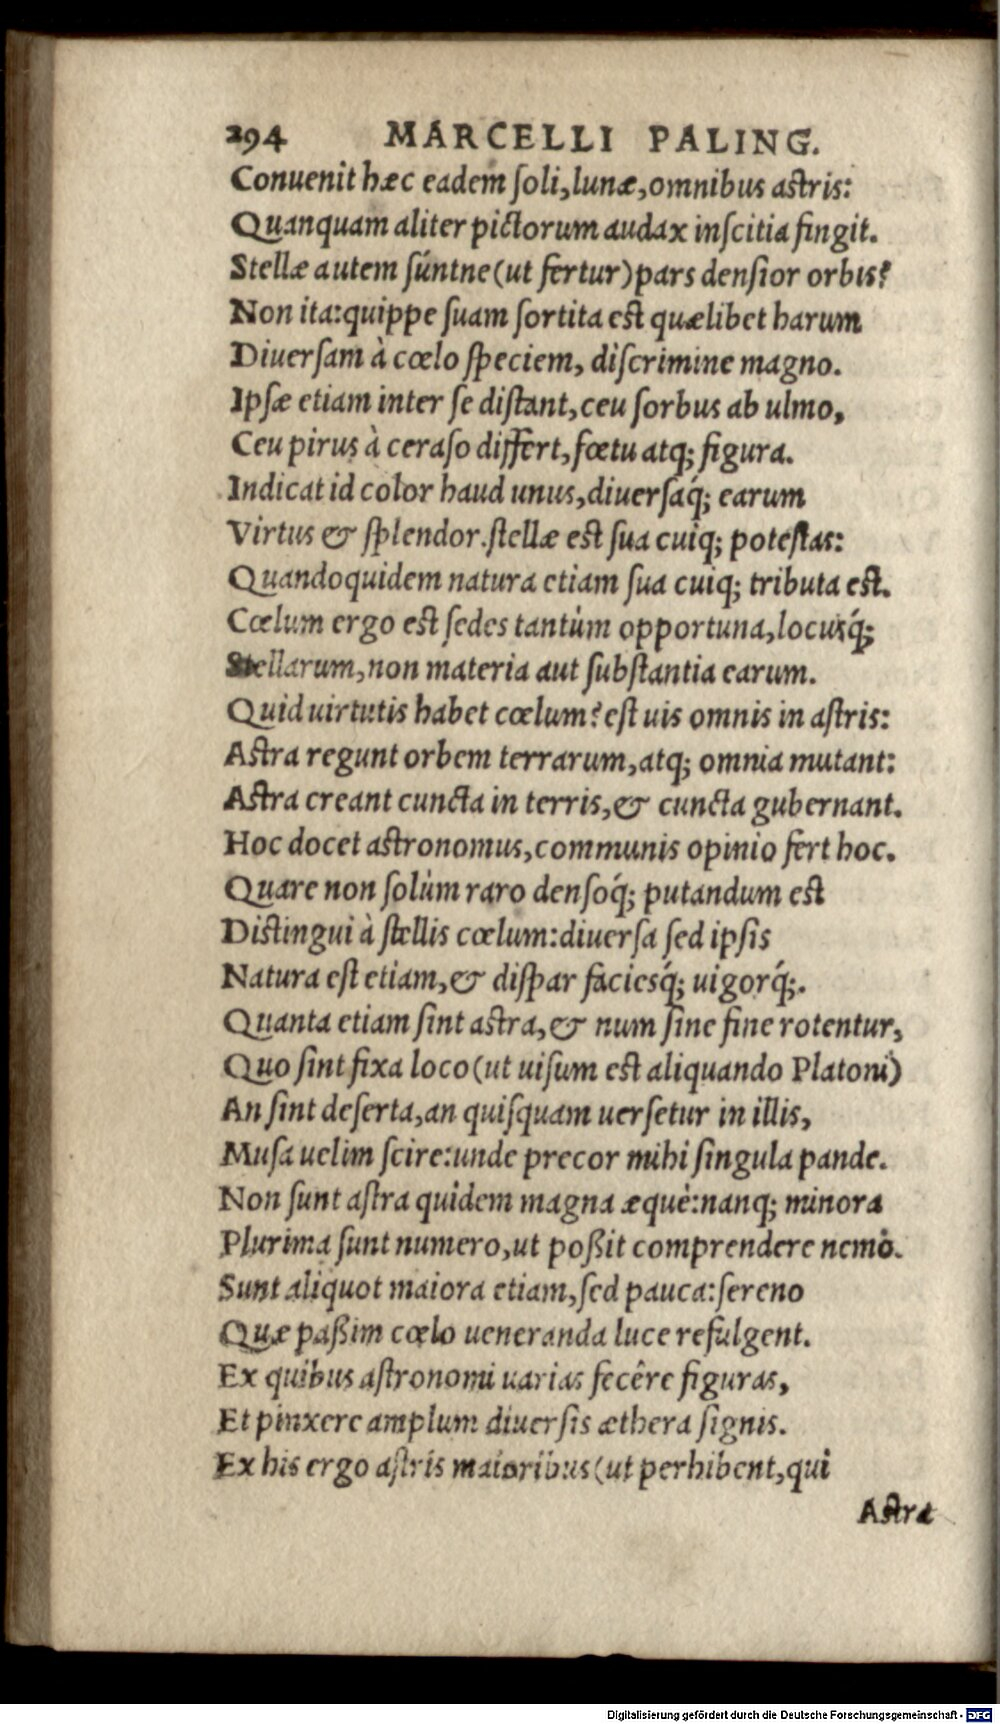 294 MARCELLI PALING.
Conuenit hæc eadem ſoli,lunæ,omnibus astris:
Quanquam aliter pictorum audax inſcitia fingit.
Stellæ autem ſúntne(ut fertur)pars denſior orbis?
Non ita:quippe ſuam ſortita est quælibet harum
Diuerſam à cœlo ſpeciem, diſcrimine magno.
Ipſæ etiam inter ſe diſtant,ceu ſorbus ab ulmo,
Ceu pirus à ceraſo differt,fœtu atq; figura.
Indicat id color haud unus,diuerſaq́; earum
Virtus & ſplendor.ſtellæ est ſua cuiq; poteſtas:
Quandoquidem natura etiam ſua cuiq; tributa est.
Cœlum ergo est ſedes tantùm opportuna,locusq́;
Stellarum,non materia aut ſubſtantia earum.
Quid uirtutis habet cœlum? eſt uis omnis in aſtris:
Astra regunt orbem terrarum,atq; omnia mutant:
Astra creant cuncta in terris,& cuncta gubernant.
Hoc docet astronomus,communis opinio fert hoc.
Quare non ſolùm raro denſoq́; putandum est
Distingui à ſtellis cœlum:diuerſa ſed ipſis
Natura eſt etiam,& diſpar faciesq́; uigorq́;.
Quanta etiam ſint astra,& num ſine fine rotentur,
Quo ſint fixa loco(ut uiſum est aliquando Platoni)
An ſint deſerta,an quiſquam uerſetur in illis,
Muſa uelim ſcire:unde precor mihi ſingula pande.
Non ſunt aſtra quidem magna æquè:nanq; minora
Plurima ſunt numero,ut poßit comprendere nemo.
Sunt aliquot maiora etiam,ſed pauca:ſereno
Quæ paßim cœlo ueneranda luce refulgent.
Ex quibus aſtronomi uarias fecêre figuras,
Et pinxere amplum diuerſis æthera ſignis.
Ex his ergo aſtris maioribus(ut perhibent,qui
Astra
Digitalisierung gefördert durch die Deutsche Forschungsgemeinschaft - DFG